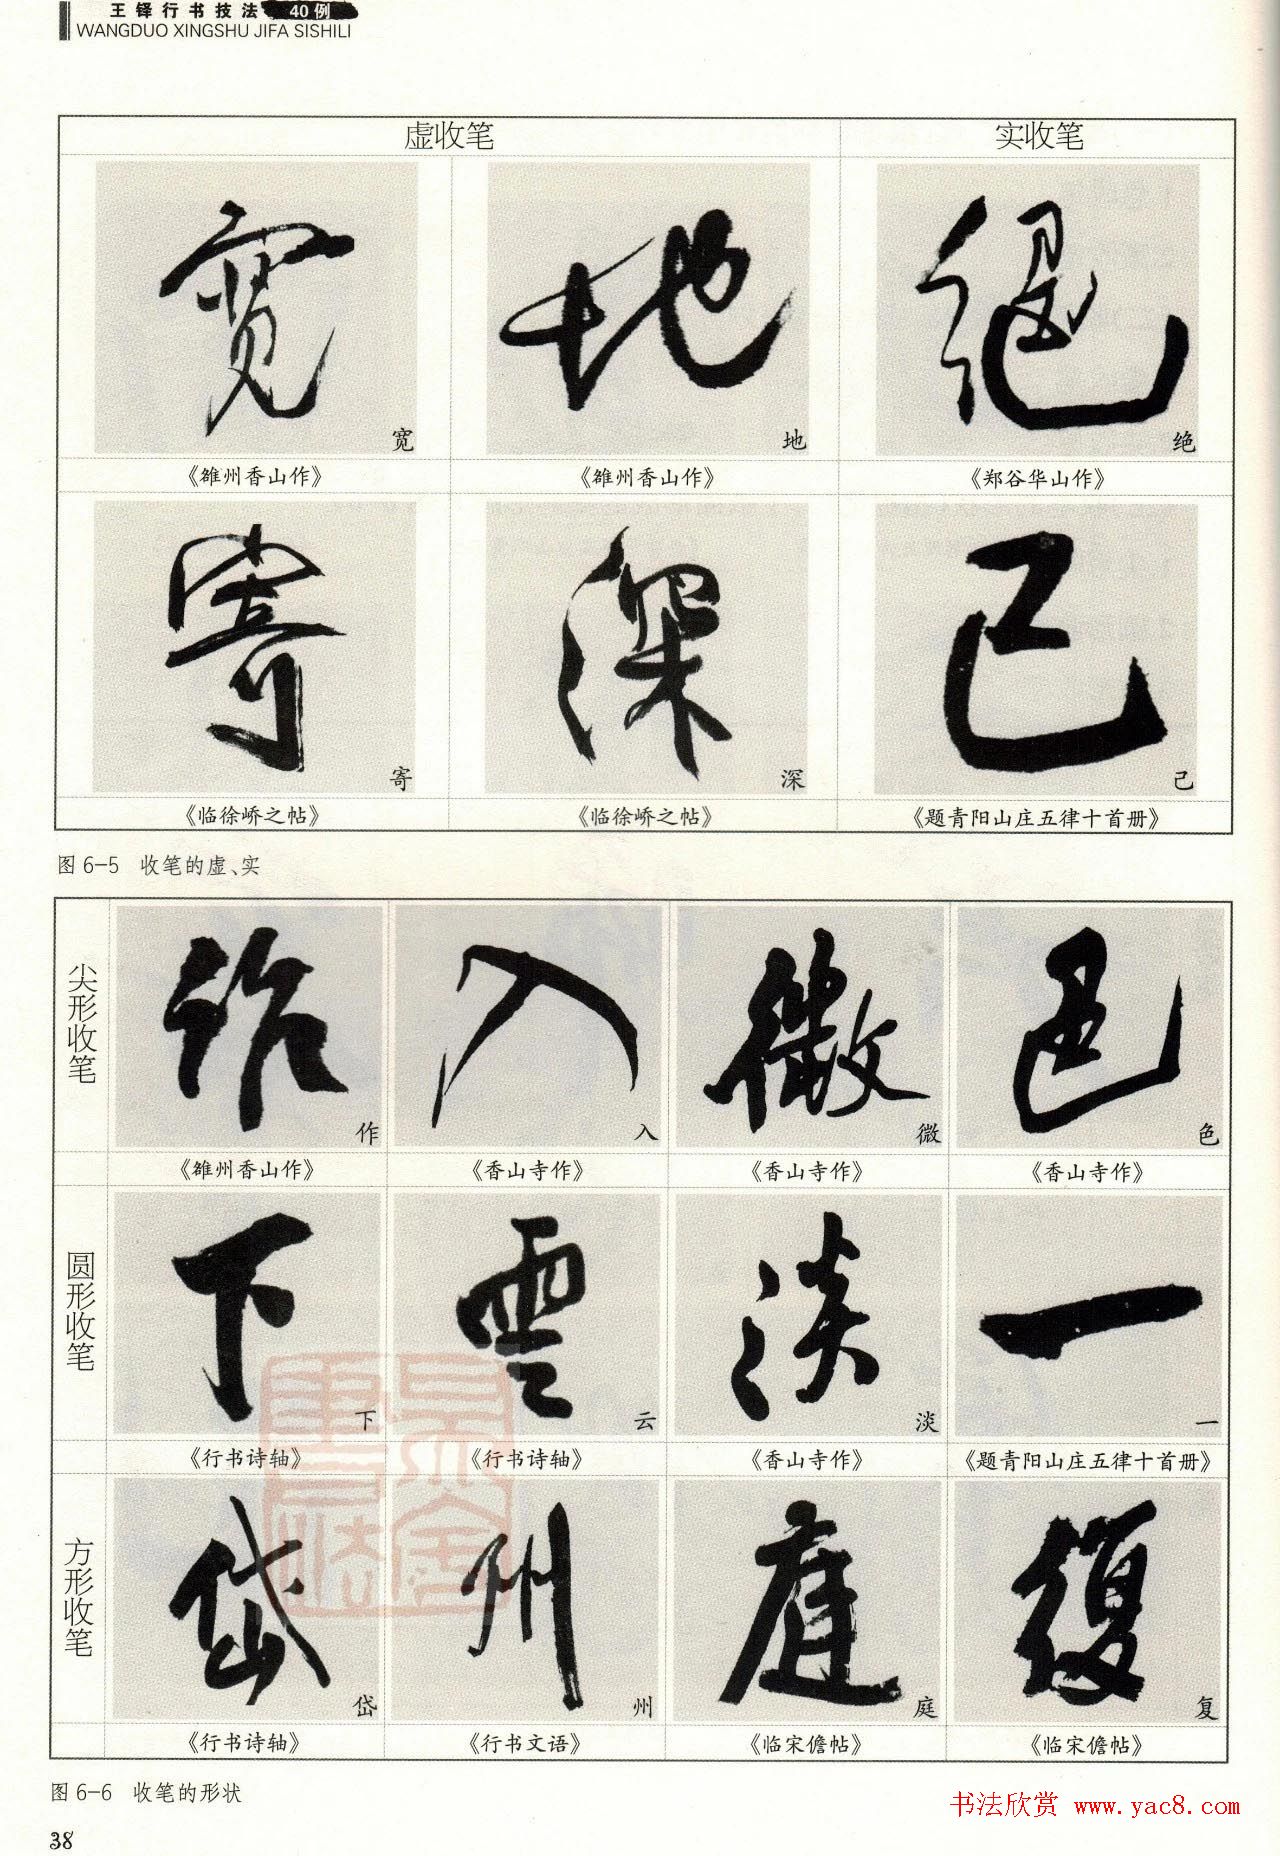 王铎行书技法 40例
WANGDUO XINGSHU JIFA SISHILI
虚收笔 实收笔
宽 地 绝
《雒州香山作》 《雒州香山作》 《郑谷华山作》
寄 深 己
《临徐峤之帖》 《临徐峤之帖》 《题青阳山庄五律十首册》
图 6-5 收笔的虚、实
尖形收笔
作 入 微 色
《雒州香山作》 《香山寺作》 《香山寺作》 《香山寺作》
圆形收笔
下 云 淡 一
《行书诗轴》 《行书诗轴》 《香山寺作》 《题青阳山庄五律十首册》
方形收笔
岱 州 庭 复
《行书诗轴》 《行书文语》 《临宋儋帖》 《临宋儋帖》
图 6-6 收笔的形状
38
书法欣赏 www.yac8.com